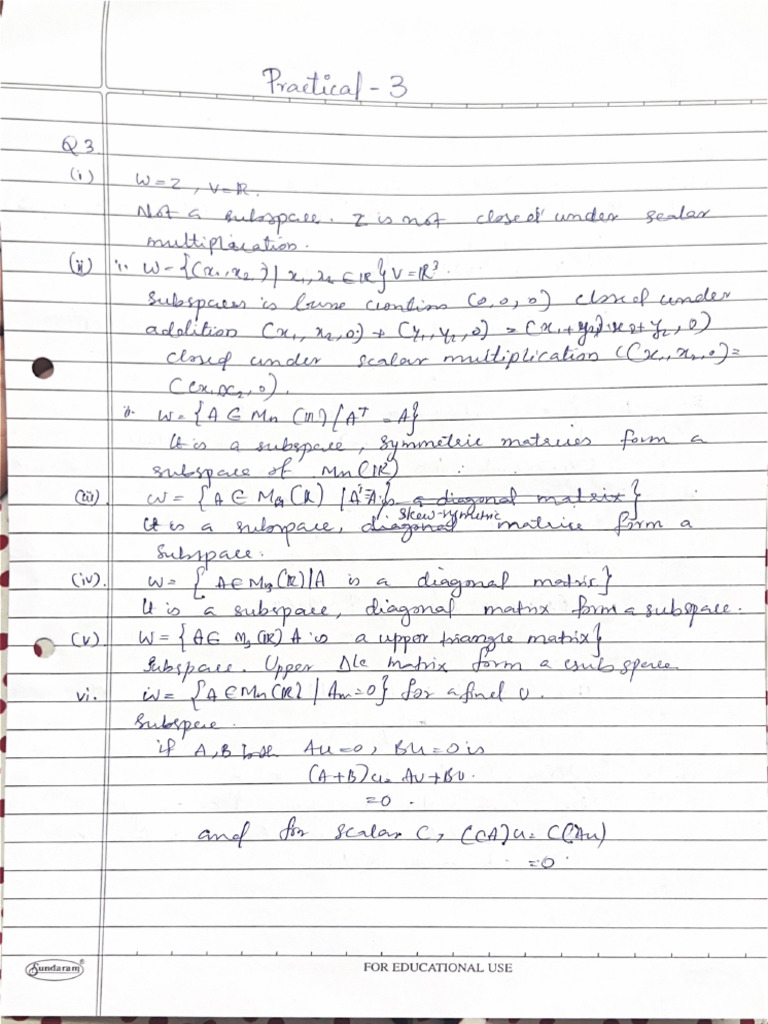 Practical - 3
Q 3.
(i) W = Z, V = IR.
Not a subspace. Z is not closed under scalar
multiplication.
(ii) i. W = {(x₁, x₂) | x₁, x₂ ∈ IR} V = IR³.
Subspaces (0, 0, 0) closed under
addition (x₁, x₂, 0) + (y₁, y₂, 0) = (x₁ + y₁, x₂ + y₂, 0)
closed under scalar multiplication C(x₁, x₂, 0) =
(Cx, Cx₂, 0).
ii. W = {A ∈ Mn (IR) / Aᵀ = A}
It is a subspace, symmetric matrices form a
subspace of Mn(IR)
(iii) W = {A ∈ M (R) | is a diagonal matrix}
skew-symmetric
It is a subspace, diagonal matrice form a
Subspace.
(iv). W = {A ∈ M₃(IR) | A is a diagonal matrix}
It is a subspace, diagonal matrix form a subspace.
(v). W = {A ∈ M₃(IR) A is a upper triangle matrix}
Subspace. Upper Δle matrix form a subspace
vi. W = {A ∈ Mn(IR) | Au = 0} for a fixed U.
Subspace.
if A, B Au = 0, Bu = 0 is
(A + B)u = Au + Bu.
= 0.
and for scalar C, (CA)u = C(Au)
= 0.
Sundaram®
FOR EDUCATIONAL USE